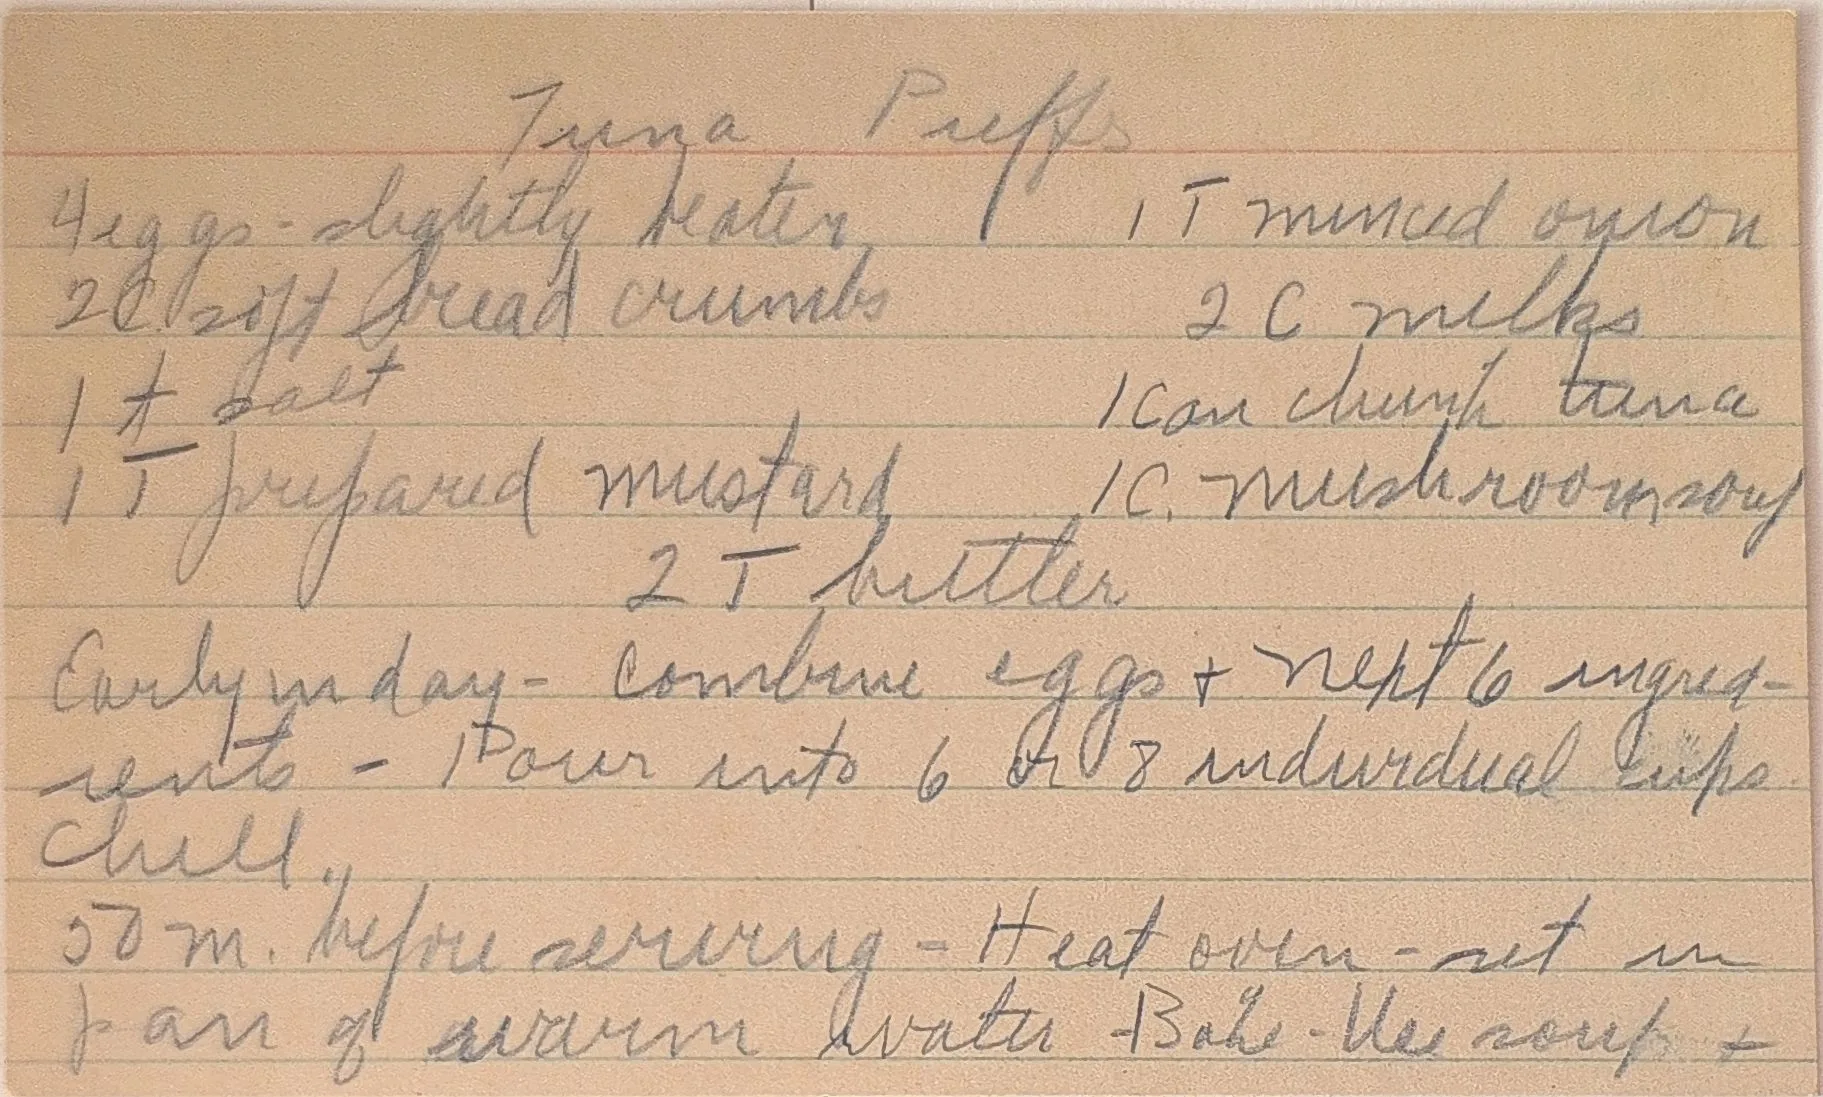 Tuna Puffs
4 eggs - slightly beaten 1 T minced onion
2 C. soft bread crumbs 2 C milks
1 t salt 1 Can chunk tuna
1 T prepared mustard 1 C. mushroom soup
2 T butter
Early in day - Combine eggs + next 6 ingred-
ients - Pour into 6 or 8 individual cups.
Chill.
50 m. before serving - Heat oven - set in
pan of warm water - Bake - Use soup +